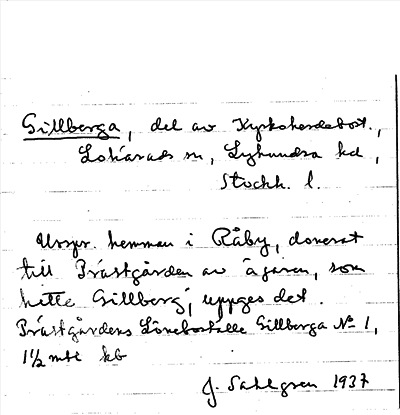 Gillberga, del av Kyrkoherdebost.,
Lohärads sn, Lyhundra hd,
Stockh. l.
Urspr. hemman i Råby, donerat
till Prästgården av ägaren, som
hette Gillberg, uppges det.
Prästgårdens Löneboställe Gillberga No 1,
1½ mtl kb
J. Sahlgren 1937